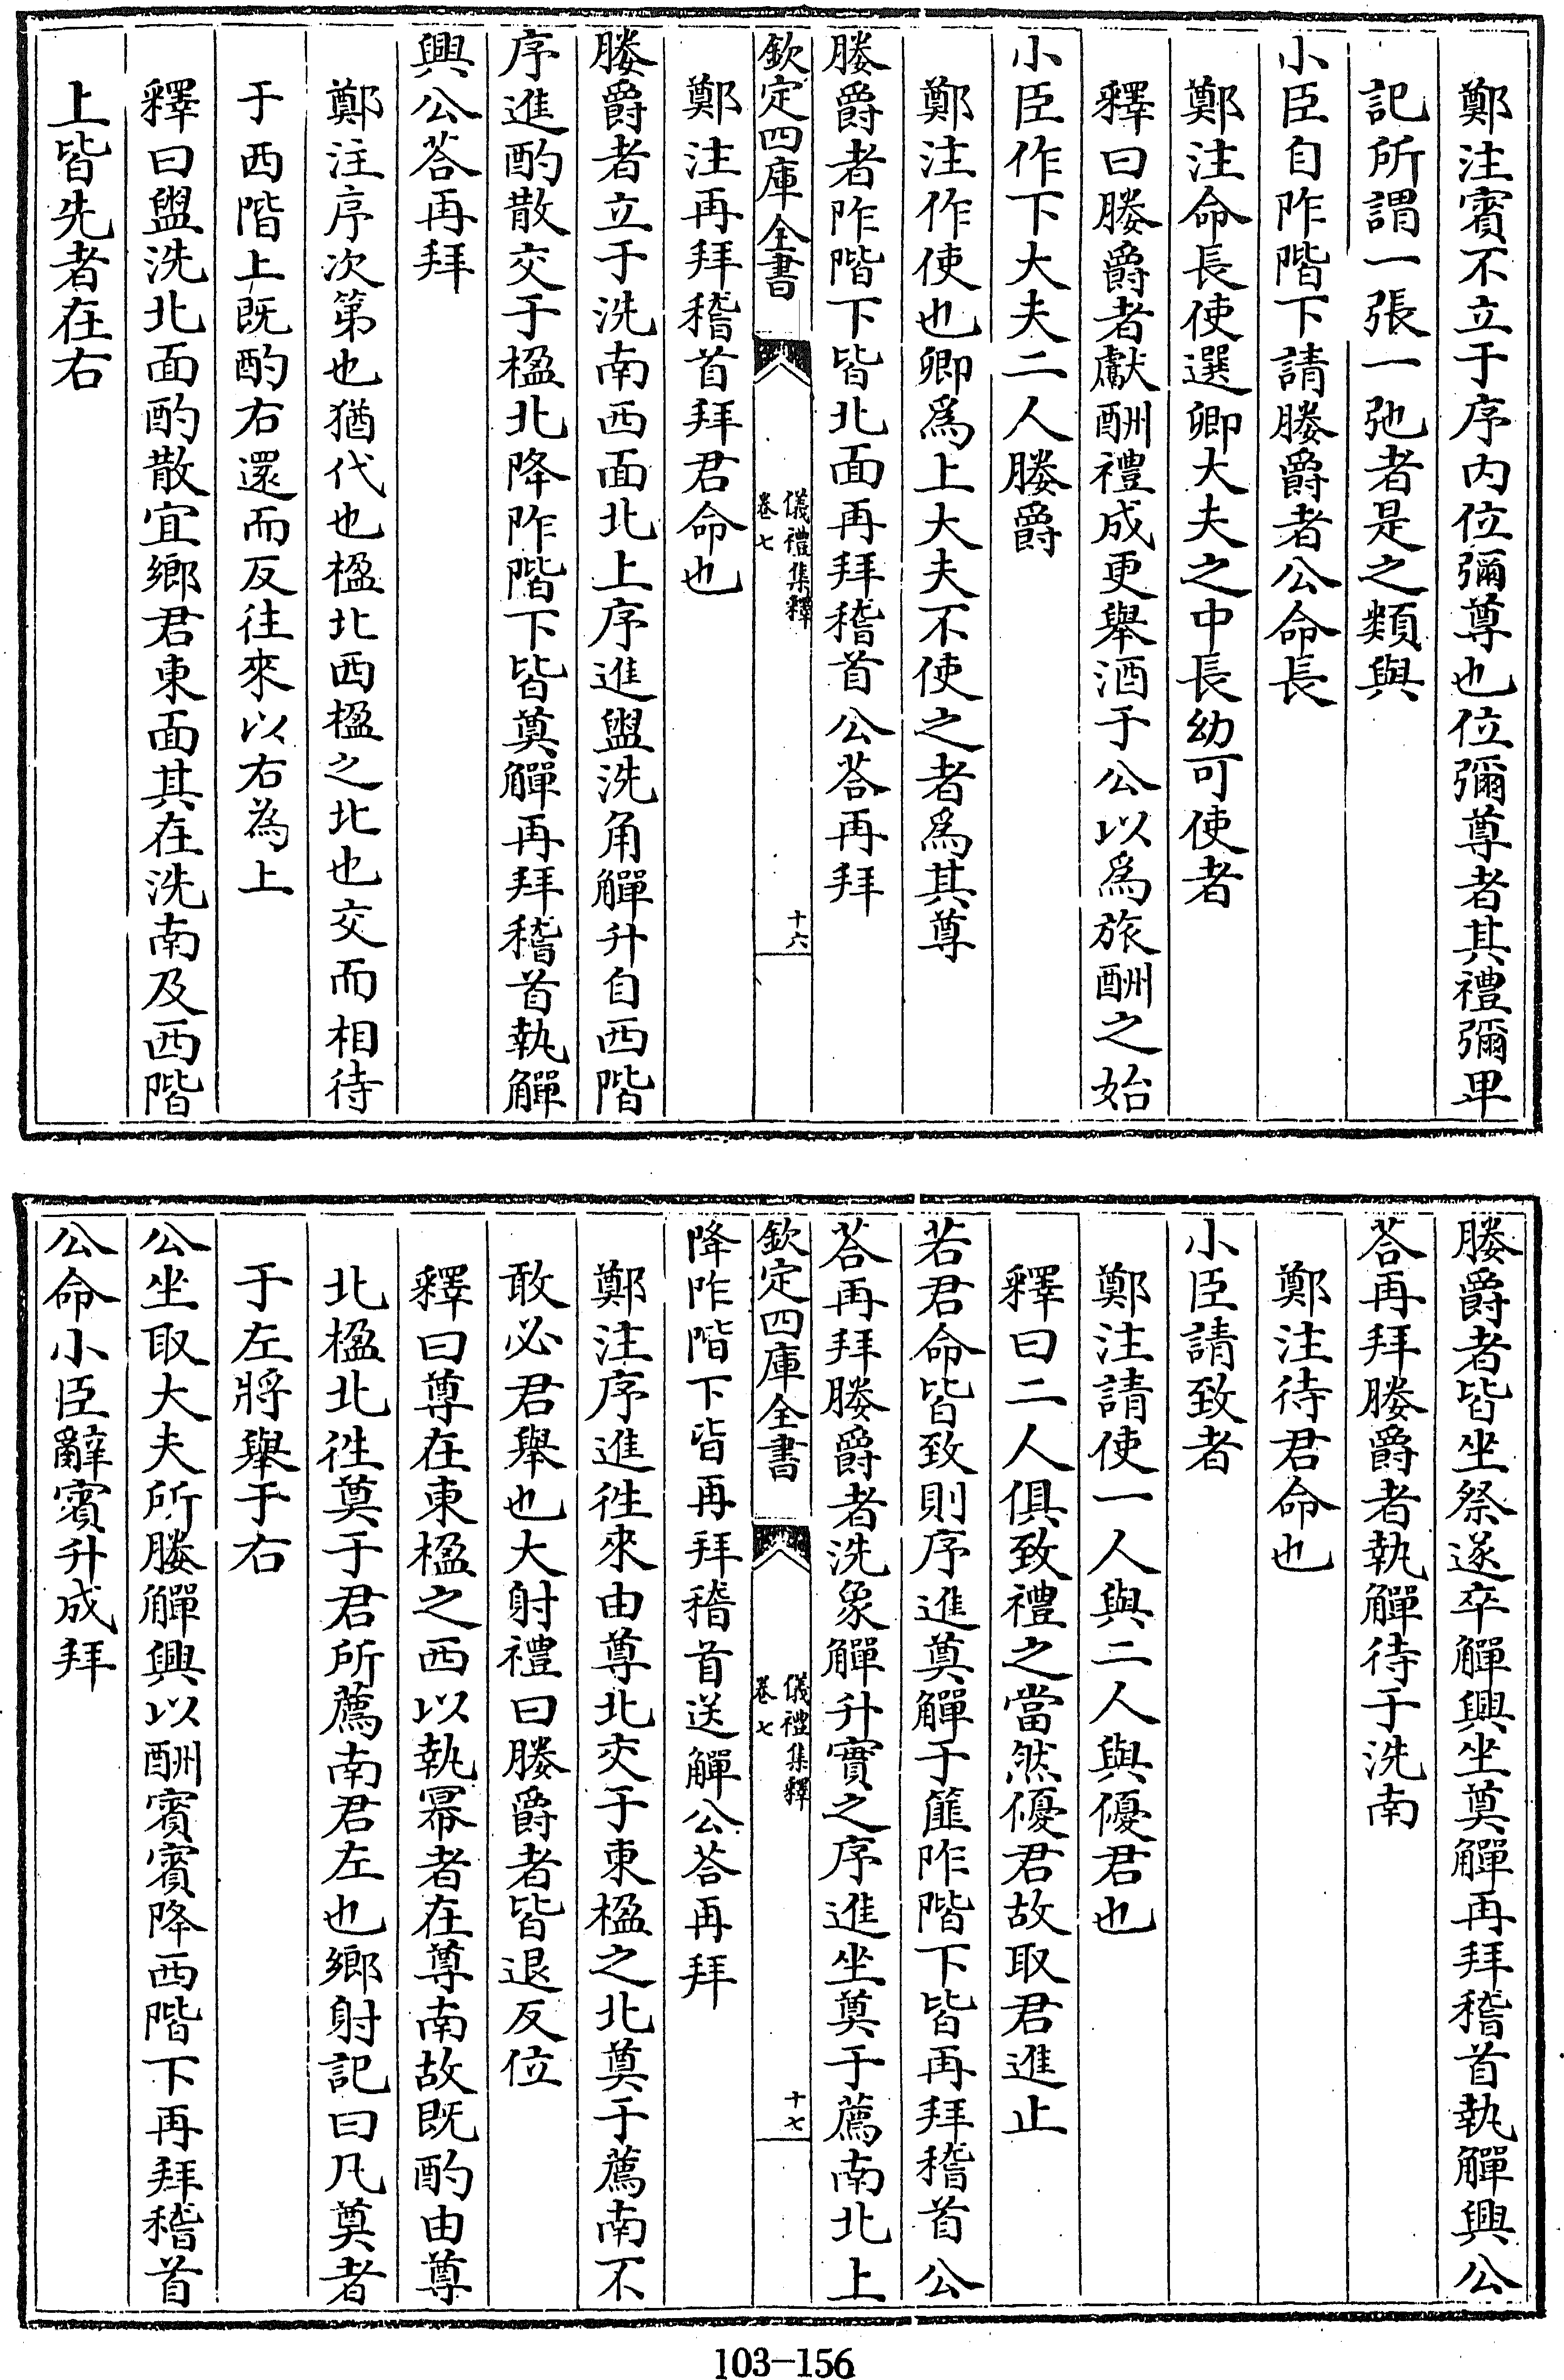 鄭注賓不立于序内位彌尊也位彌尊者其禮彌卑
記所謂一張一弛者是之類與
小臣自阼階下請媵爵者公命長
鄭注命長使選卿大夫之中長幼可使者
釋曰媵爵者獻酬禮成更舉酒于公以爲旅酬之始
小臣作下大夫二人媵爵
鄭注作使也卿爲上大夫不使之者爲其尊
媵爵者阼階下皆北面再拜稽首公荅再拜
欽定四庫全書
儀禮集釋
卷七
十六
鄭注再拜稽首拜君命也
媵爵者立于洗南西面北上序進盥洗角觶升自西階
序進酌散交于楹北降阼階下皆奠觶再拜稽首執觶
興公荅再拜
鄭注序次第也猶代也楹北西楹之北也交而相待
于西階上既酌右還而反往來以右為上
釋曰盥洗北面酌散宜鄉君東面其在洗南及西階
上皆先者在右
媵爵者皆坐祭遂卒觶興坐奠觶再拜稽首執觶興公
荅再拜媵爵者執觶待于洗南
鄭注待君命也
小臣請致者
鄭注請使一人與二人與優君也
釋曰二人俱致禮之當然優君故取君進止
若君命皆致則序進奠觶于篚阼階下皆再拜稽首公
荅再拜媵爵者洗象觶升實之序進坐奠于薦南北上
欽定四庫全書
儀禮集釋
卷七
十七
降阼階下皆再拜稽首送觶公荅再拜
鄭注序進徃來由尊北交于東楹之北奠于薦南不
敢必君舉也大射禮曰媵爵者皆退反位
釋曰尊在東楹之西以執冪者在尊南故既酌由尊
北楹北徃奠于君所薦南君左也鄉射記曰凡奠者
于左將舉于右
公坐取大夫所媵觶興以酬賓賓降西階下再拜稽首
公命小臣辭賓升成拜
103-156